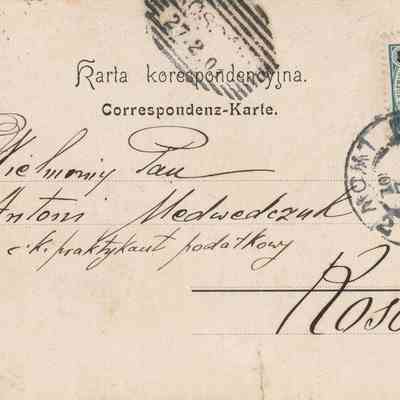 27.2.0
Karta korespondencyjna.
Correspondenz-Karte.
Wielmożny Pan
Antoni Medwedczuk
c.k. praktykant podatkowy
Kos